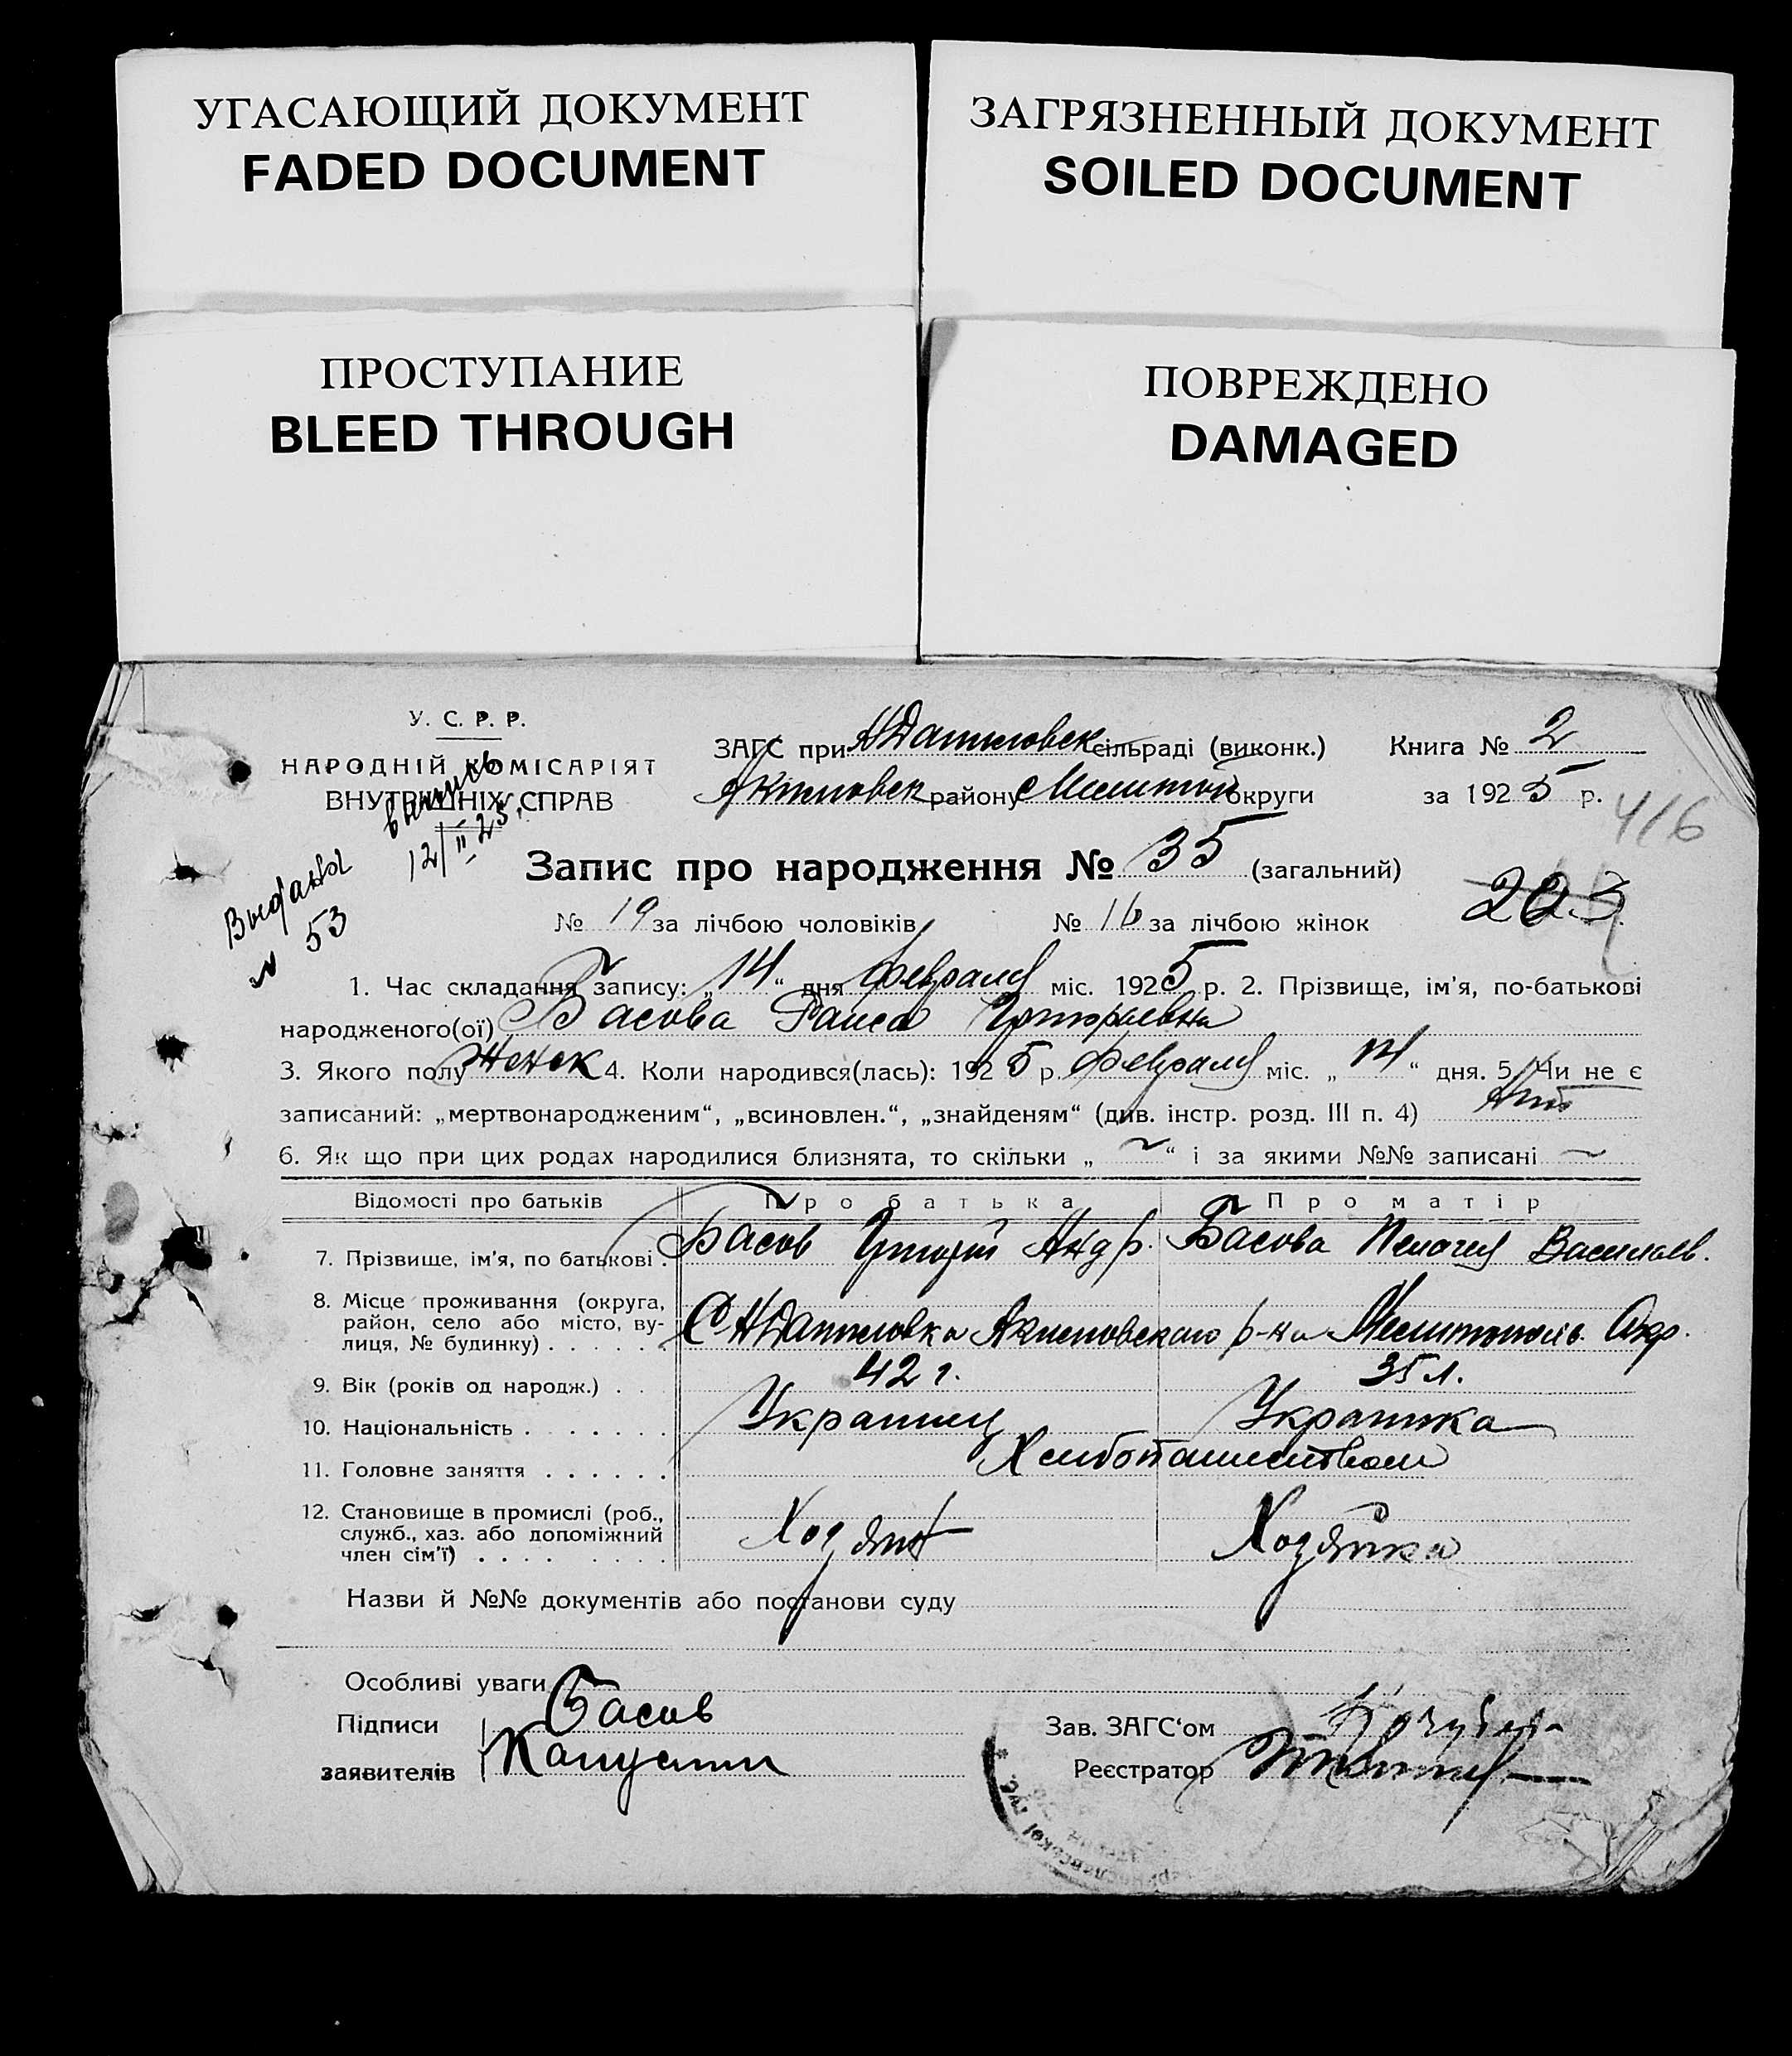 УГАСАЮЩИЙ ДОКУМЕНТ
FADED DOCUMENT
ЗАГРЯЗНЕННЫЙ ДОКУМЕНТ
SOILED DOCUMENT
ПРОСТУПАНИЕ
BLEED THROUGH
ПОВРЕЖДЕНО
DAMAGED
У. С. Р. Р.
НАРОДНІЙ КОМІСАРІЯТ
ВНУТРІШНІХ СПРАВ
ЗАГС при НДаниловск сільраді (виконк.) Книга № 2
Акимовск району Мелитоп округи за 1925 р.
416
Выдана выпись
12/II 25 г.
№ 53
Запис про народження № 35 (загальний)
№ 19 за лічбою чоловіків № 16 за лічбою жінок
203
1. Час складання запису: „14“ дня февраля міс. 1925 р. 2. Прізвище, ім'я, по-батькові
народженого(ої) Басова Раиса Григорьевна
3. Якого полу Женск 4. Коли народився(лась): 1925 р. февраля міс. „ “ дня. 5. Чи не є
записаний: „мертвонародженим“, „всиновлен.“, „знайденям“ (див. інстр. розд. III п. 4) Нет
6. Як що при цих родах народилися близнята, то скільки „ ~ “ і за якими №№ записані ~
Відомості про батьків Про батька Про матір
7. Прізвище, ім'я, по батькові . Басов Григорій Андр. Басова Пелагея Васильев.
8. Місце проживання (округа,
район, село або місто, ву-
лиця, № будинку) . . . . . . С НДаниловка Акимовского р-на Мелитополь. Окр.
9. Вік (років од народж.) . . . 42 г. 35 л.
10. Національність . . . . . . . Украинец Украинка
11. Головне заняття . . . . . . Хлебопашеством
12. Становище в промислі (роб.,
служб., хаз. або допоміжний
член сім'ї) . . . . . . . . Хозяин Хозяйка
Назви й №№ документів або постанови суду
Особливі уваги
Підписи Басов
заявителів Капустин
Зав. ЗАГС'ом
Реєстратор